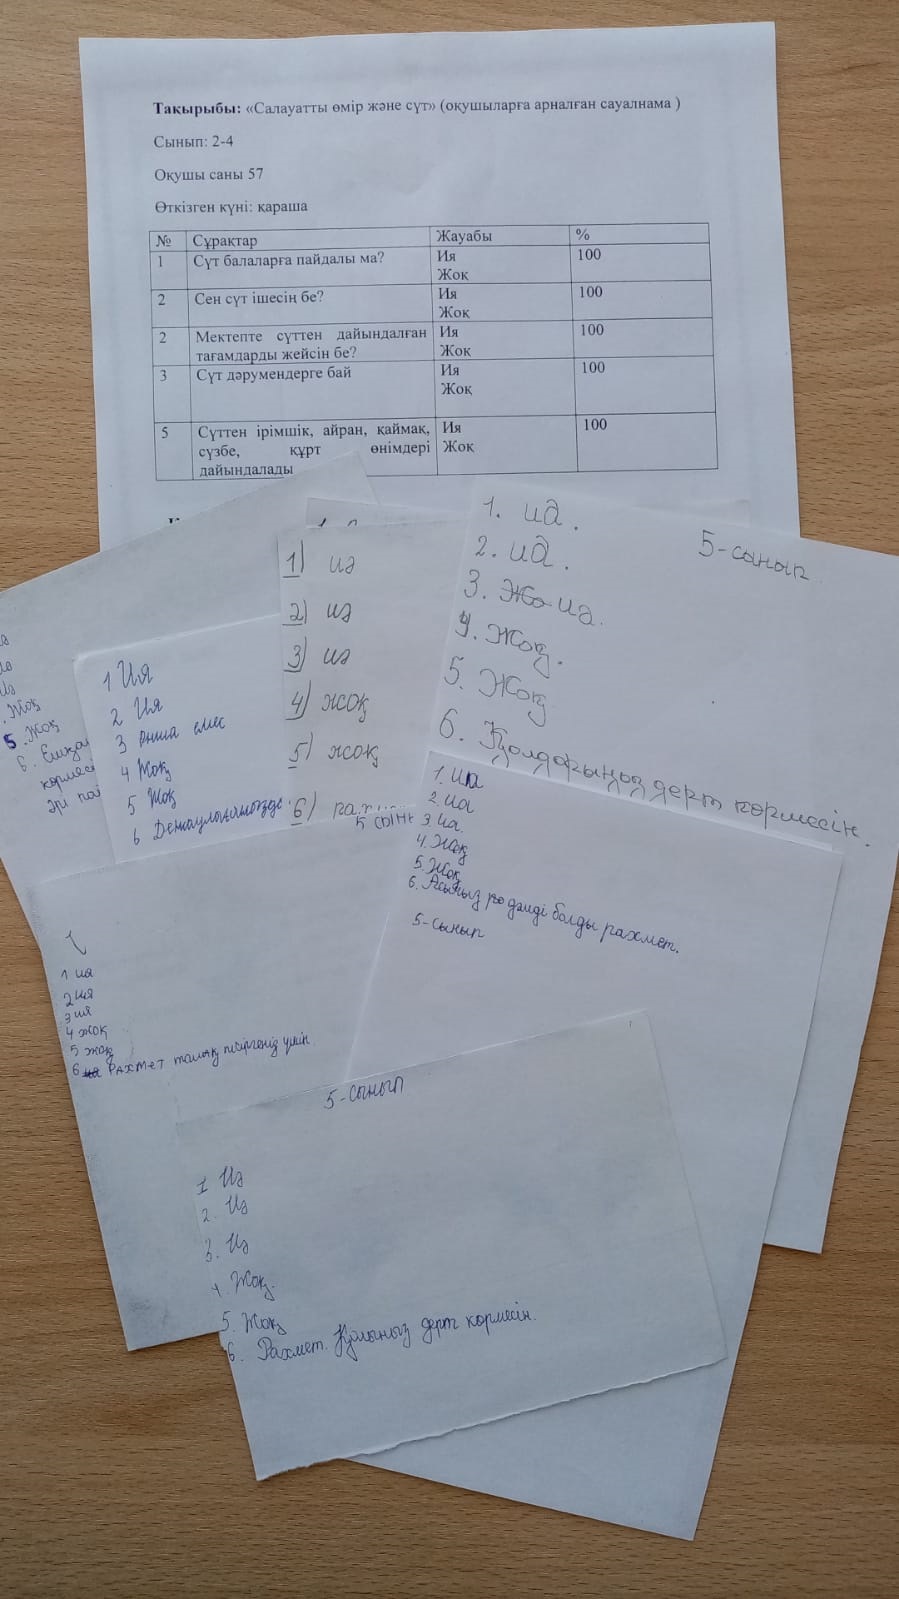 Тақырыбы: «Салауатты өмір және сүт» (оқушыларға арналған сауалнама )
Сынып: 2-4
Оқушы саны 57
Өткізген күні: қараша
№ Сұрақтар Жауабы %
1 Сүт балаларға пайдалы ма? Ия 100
Жоқ
2 Сен сүт ішесің бе? Ия 100
Жоқ
2 Мектепте сүттен дайындалған Ия 100
тағамдарды жейсін бе? Жоқ
3 Сүт дәрумендерге бай Ия 100
Жоқ
5 Сүттен ірімшік, айран, қаймақ, Ия 100
сүзбе, құрт өнімдері Жоқ
дайындалады
Жоқ
5. Жоқ
6.
1 Ия
2 Ия
3 онша емес
4 Жоқ
5 Жоқ
6
1) иә
2) иә
3) иә
4) жоқ
5) жоқ
6)
5-сынып
1. иә.
2. иә.
3. иә.
4. Жоқ.
5. Жоқ
6. Қолдарыңыз дерт көрмесін.
1. Иа
2. иа
3 иа.
4. Жоқ
5. Жоқ
6. Асыңыз дәмді болды рахмет.
5-сынып
1 ия
2 ия
3 ия
4 жоқ
5 жоқ
6 Рахмет тамақ пісіргеніз үшін.
5-сынып
1 Иә
2. Иә
3. Иә
4. Жоқ.
5. Жоқ
6. Рахмет. Қолыңыз дерт көрмесін.